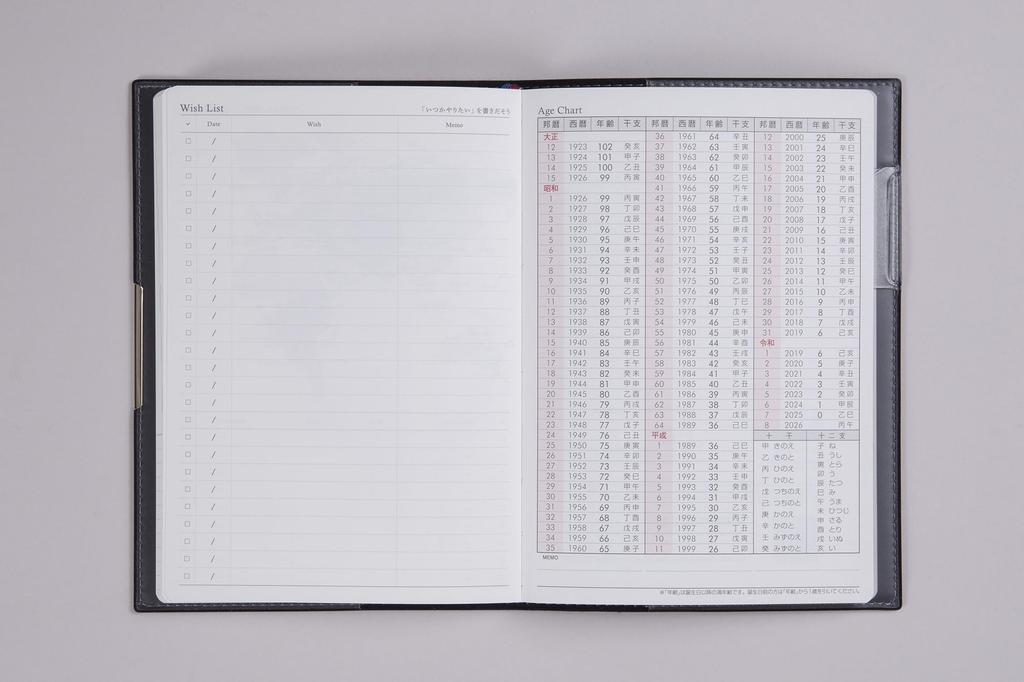 Wish List
「いつかやりたい」を書きだそう
✓ Date Wish Memo
□ /
□ /
□ /
□ /
□ /
□ /
□ /
□ /
□ /
□ /
□ /
□ /
□ /
□ /
□ /
□ /
□ /
□ /
□ /
□ /
□ /
□ /
□ /
□ /
□ /
□ /
Age Chart
邦暦 西暦 年齢 干支
大正
12 1923 102 癸亥
13 1924 101 甲子
14 1925 100 乙丑
15 1926 99 丙寅
昭和
1 1926 99 丙寅
2 1927 98 丁卯
3 1928 97 戊辰
4 1929 96 己巳
5 1930 95 庚午
6 1931 94 辛未
7 1932 93 壬申
8 1933 92 癸酉
9 1934 91 甲戌
10 1935 90 乙亥
11 1936 89 丙子
12 1937 88 丁丑
13 1938 87 戊寅
14 1939 86 己卯
15 1940 85 庚辰
16 1941 84 辛巳
17 1942 83 壬午
18 1943 82 癸未
19 1944 81 甲申
20 1945 80 乙酉
21 1946 79 丙戌
22 1947 78 丁亥
23 1948 77 戊子
24 1949 76 己丑
25 1950 75 庚寅
26 1951 74 辛卯
27 1952 73 壬辰
28 1953 72 癸巳
29 1954 71 甲午
30 1955 70 乙未
31 1956 69 丙申
32 1957 68 丁酉
33 1958 67 戊戌
34 1959 66 己亥
35 1960 65 庚子
邦暦 西暦 年齢 干支
36 1961 64 辛丑
37 1962 63 壬寅
38 1963 62 癸卯
39 1964 61 甲辰
40 1965 60 乙巳
41 1966 59 丙午
42 1967 58 丁未
43 1968 57 戊申
44 1969 56 己酉
45 1970 55 庚戌
46 1971 54 辛亥
47 1972 53 壬子
48 1973 52 癸丑
49 1974 51 甲寅
50 1975 50 乙卯
51 1976 49 丙辰
52 1977 48 丁巳
53 1978 47 戊午
54 1979 46 己未
55 1980 45 庚申
56 1981 44 辛酉
57 1982 43 壬戌
58 1983 42 癸亥
59 1984 41 甲子
60 1985 40 乙丑
61 1986 39 丙寅
62 1987 38 丁卯
63 1988 37 戊辰
64 1989 36 己巳
平成
1 1989 36 己巳
2 1990 35 庚午
3 1991 34 辛未
4 1992 33 壬申
5 1993 32 癸酉
6 1994 31 甲戌
7 1995 30 乙亥
8 1996 29 丙子
9 1997 28 丁丑
10 1998 27 戊寅
11 1999 26 己卯
邦暦 西暦 年齢 干支
12 2000 25 庚辰
13 2001 24 辛巳
14 2002 23 壬午
15 2003 22 癸未
16 2004 21 甲申
17 2005 20 乙酉
18 2006 19 丙戌
19 2007 18 丁亥
20 2008 17 戊子
21 2009 16 己丑
22 2010 15 庚寅
23 2011 14 辛卯
24 2012 13 壬辰
25 2013 12 癸巳
26 2014 11 甲午
27 2015 10 乙未
28 2016 9 丙申
29 2017 8 丁酉
30 2018 7 戊戌
31 2019 6 己亥
令和
1 2019 6 己亥
2 2020 5 庚子
3 2021 4 辛丑
4 2022 3 壬寅
5 2023 2 癸卯
6 2024 1 甲辰
7 2025 0 乙巳
8 2026 丙午
十干
甲 きのえ
乙 きのと
丙 ひのえ
丁 ひのと
戊 つちのえ
己 つちのと
庚 かのえ
辛 かのと
壬 みずのえ
癸 みずのと
十二支
子 ね
丑 うし
寅 とら
卯 う
辰 たつ
巳 み
午 うま
未 ひつじ
申 さる
酉 とり
戌 いぬ
亥 い
MEMO
※「年齢」は誕生日以降の満年齢です。誕生日前の方は「年齢」から1歳を引いてください。